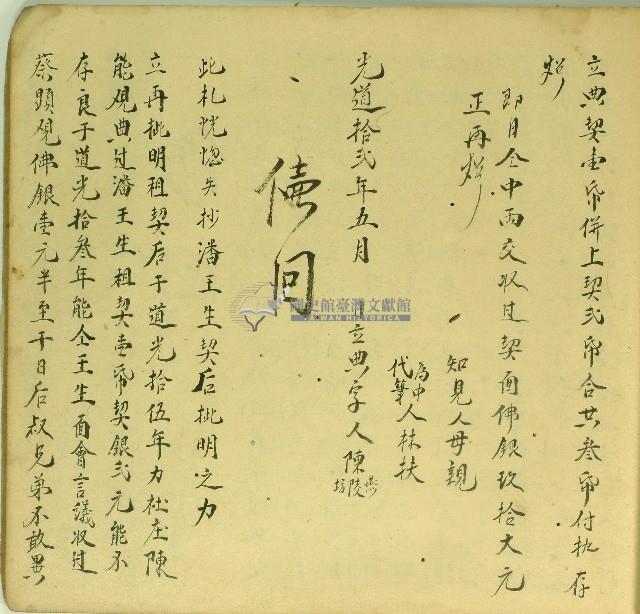 立典契壹帋併上契弐帋合共叁帋付执存
炤
即日仝中两交收过契面佛銀玖拾大元
正再炤
知見人母親
為中
代筆人林扶
光道拾弐年五月 日立典字人陳
燕陵坊
贖回
此札恍惚失抄潘王生契后批明之力
立再批明祖契后于道光拾伍年力社庄陳
能观典过潘王生祖契壹帋契銀弐元能不
存良于道光拾叁年能仝王生面會言議收过
蔡顕观佛銀壹元半至于日后叔兄弟不敢異
國史館臺灣文獻館
TAIWAN HISTORICA